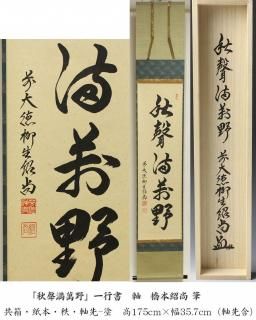 満
萬
野
前大徳柳生紹尚
秋聲満萬野
前大徳柳生紹尚
秋聲満萬野 前大徳柳生紹尚
「秋聲満萬野」一行書　軸　橋本紹尚 筆
共箱・紙本・秋・軸先-塗　高175cm×幅35.7cm（軸先含）